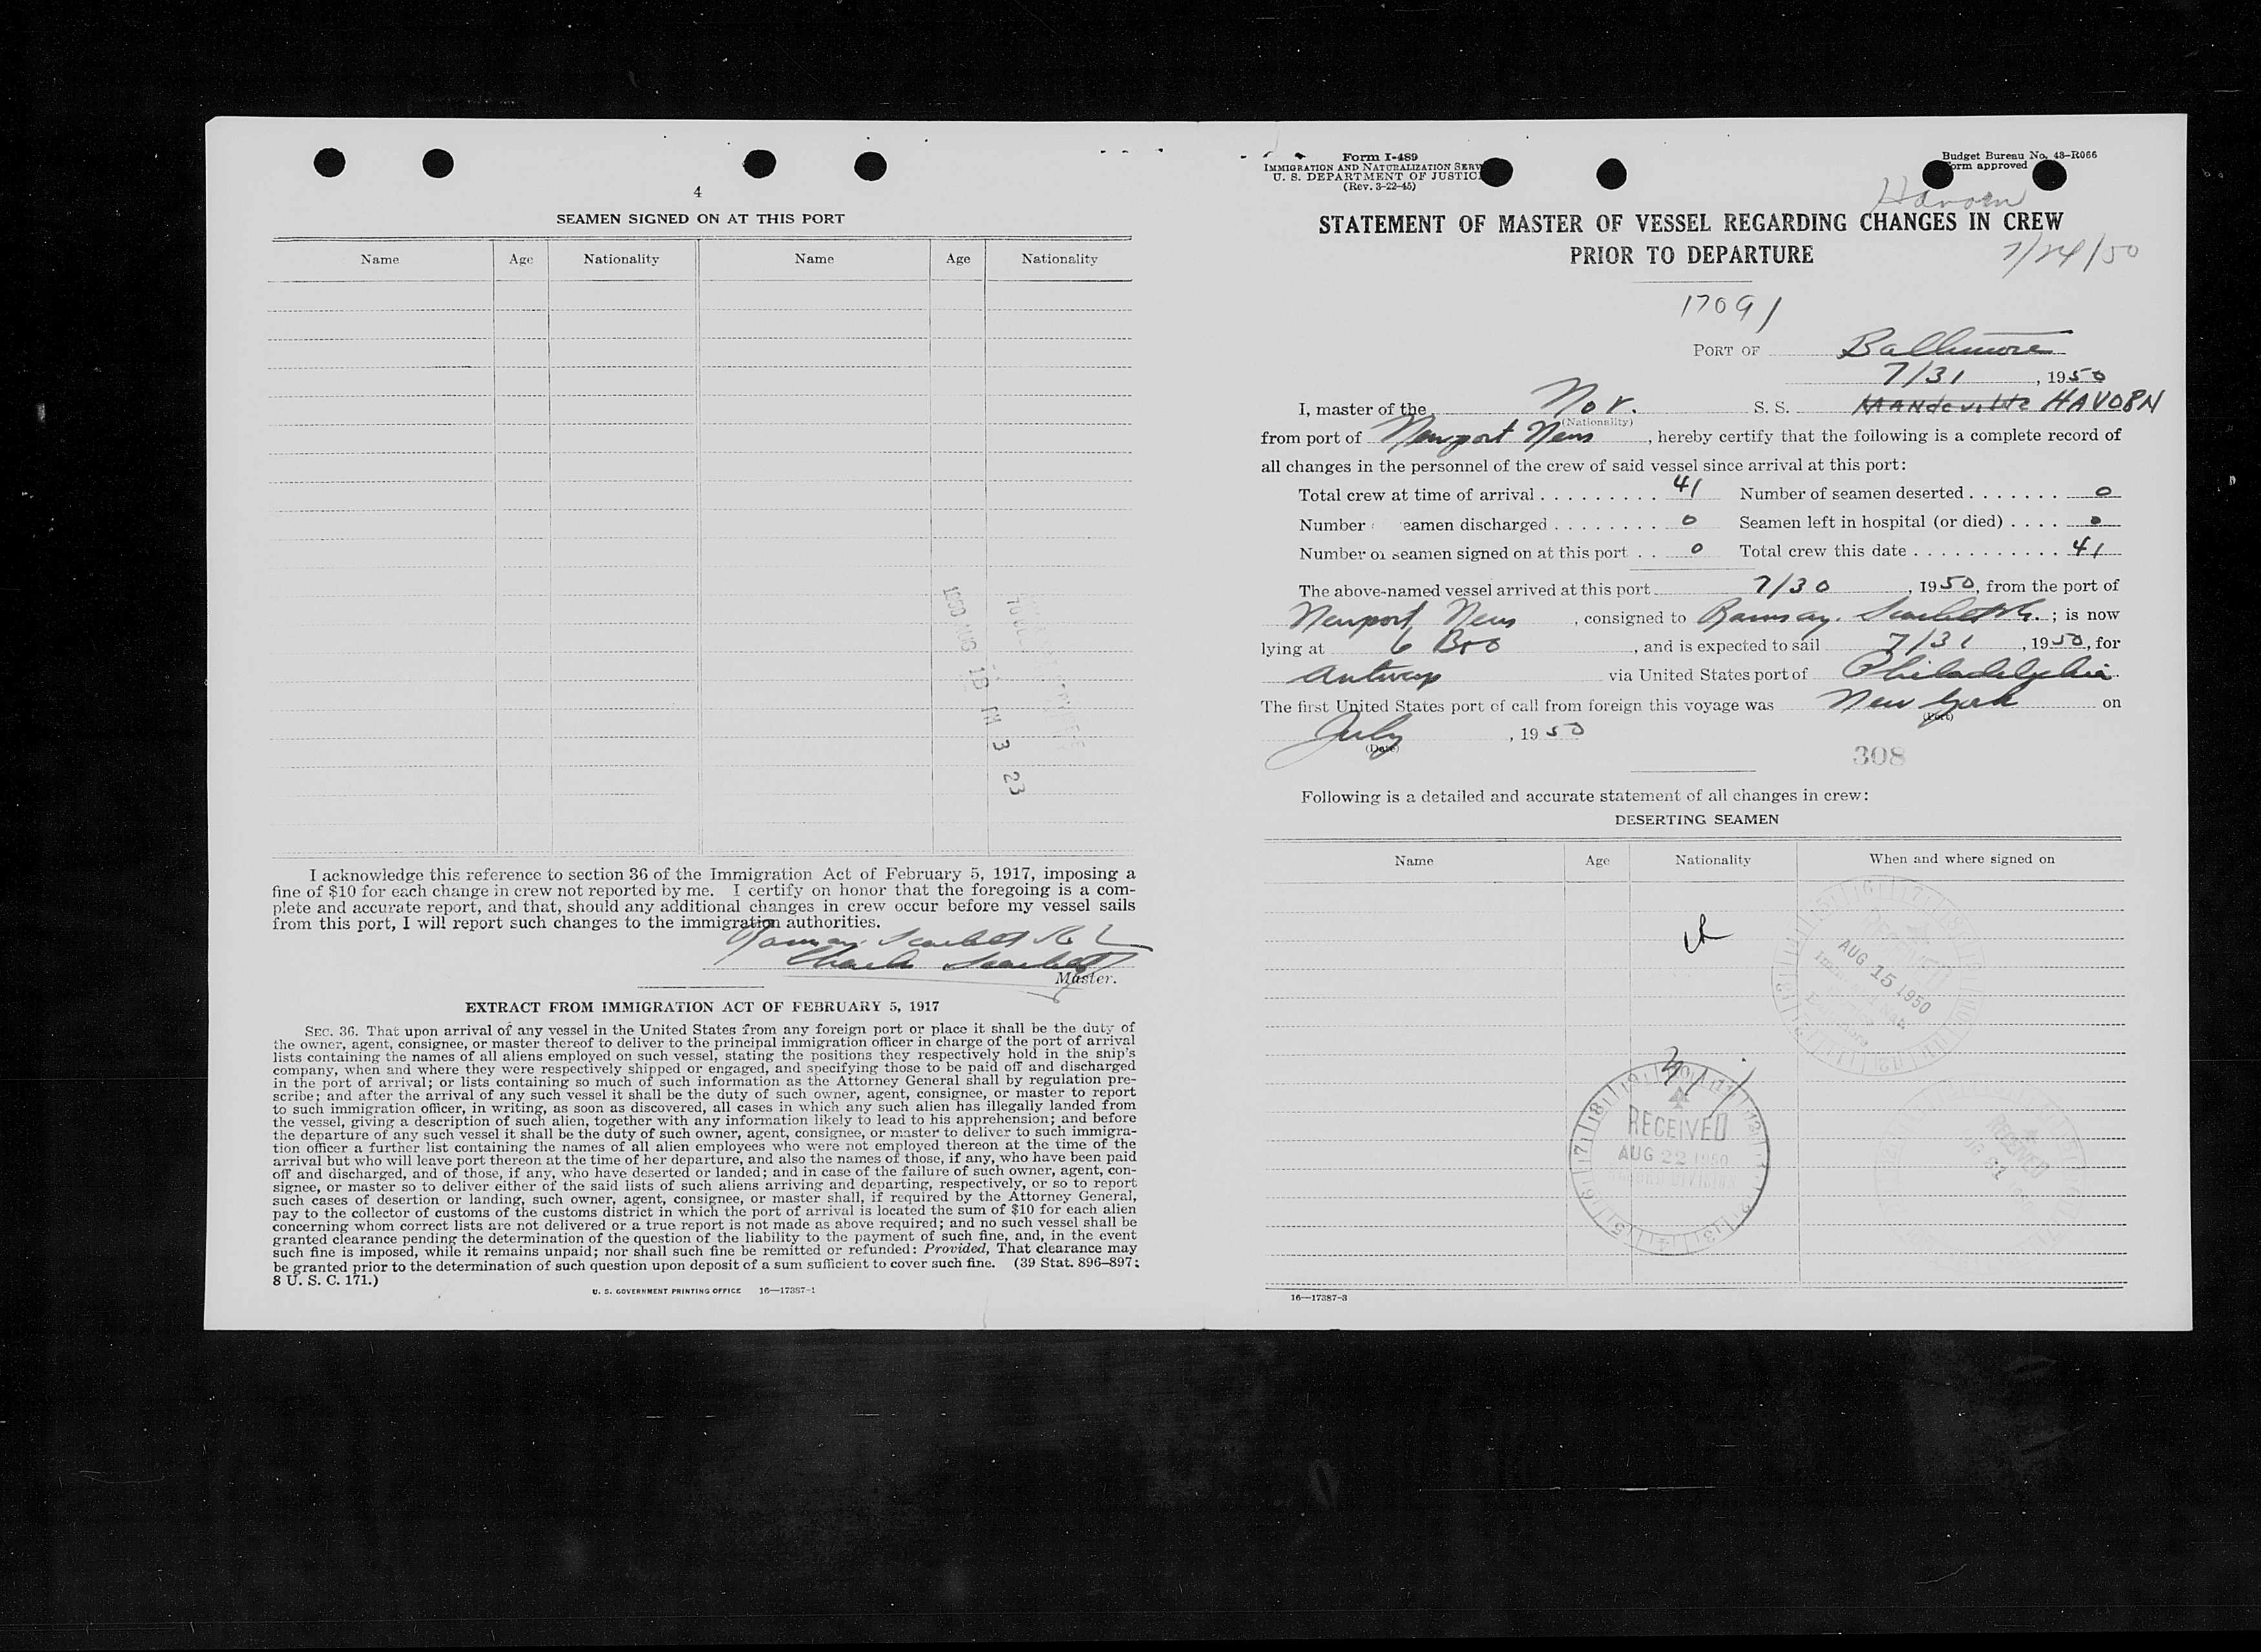 4
SEAMEN SIGNED ON AT THIS PORT
Name Age Nationality Name Age Nationality
1950 AUG 15 PM 3 23
I acknowledge this reference to section 36 of the Immigration Act of February 5, 1917, imposing a
fine of $10 for each change in crew not reported by me. I certify on honor that the foregoing is a com-
plete and accurate report, and that, should any additional changes in crew occur before my vessel sails
from this port, I will report such changes to the immigration authorities.
Ramsay, Scarlett & Co
Charles Scarlett
Master.
EXTRACT FROM IMMIGRATION ACT OF FEBRUARY 5, 1917
SEC. 36. That upon arrival of any vessel in the United States from any foreign port or place it shall be the duty of
the owner, agent, consignee, or master thereof to deliver to the principal immigration officer in charge of the port of arrival
lists containing the names of all aliens employed on such vessel, stating the positions they respectively hold in the ship's
company, when and where they were respectively shipped or engaged, and specifying those to be paid off and discharged
in the port of arrival; or lists containing so much of such information as the Attorney General shall by regulation pre-
scribe; and after the arrival of any such vessel it shall be the duty of such owner, agent, consignee, or master to report
to such immigration officer, in writing, as soon as discovered, all cases in which any such alien has illegally landed from
the vessel, giving a description of such alien, together with any information likely to lead to his apprehension; and before
the departure of any such vessel it shall be the duty of such owner, agent, consignee, or master to deliver to such immigra-
tion officer a further list containing the names of all alien employees who were not employed thereon at the time of the
arrival but who will leave port thereon at the time of her departure, and also the names of those, if any, who have been paid
off and discharged, and of those, if any, who have deserted or landed; and in case of the failure of such owner, agent, con-
signee, or master so to deliver either of the said lists of such aliens arriving and departing, respectively, or so to report
such cases of desertion or landing, such owner, agent, consignee, or master shall, if required by the Attorney General,
pay to the collector of customs of the customs district in which the port of arrival is located the sum of $10 for each alien
concerning whom correct lists are not delivered or a true report is not made as above required; and no such vessel shall be
granted clearance pending the determination of the question of the liability to the payment of such fine, and, in the event
such fine is imposed, while it remains unpaid; nor shall such fine be remitted or refunded: Provided, That clearance may
be granted prior to the determination of such question upon deposit of a sum sufficient to cover such fine. (39 Stat. 896–897;
8 U. S. C. 171.)
U. S. GOVERNMENT PRINTING OFFICE 16—17387-1
Form I-489
IMMIGRATION AND NATURALIZATION SERV
U. S. DEPARTMENT OF JUSTIC
(Rev. 3-22-45)
Budget Bureau No. 43-R066
orm approved
Havorn
STATEMENT OF MASTER OF VESSEL REGARDING CHANGES IN CREW
PRIOR TO DEPARTURE
7/24/50
17091
PORT OF Baltimore
7/31, 1950
I, master of the Nor. S. S. Mandeville HAVORN
(Nationality)
from port of Newport News, hereby certify that the following is a complete record of
all changes in the personnel of the crew of said vessel since arrival at this port:
Total crew at time of arrival . . . . . . . . . 41 Number of seamen deserted . . . . . . . 0
Number eamen discharged . . . . . . . . 0 Seamen left in hospital (or died) . . . . 0
Number of seamen signed on at this port . . 0 Total crew this date . . . . . . . . . . . . 41
The above-named vessel arrived at this port 7/30, 1950, from the port of
Newport News, consigned to Ramsay, Scarlett & Co.; is now
lying at 6 Bro, and is expected to sail 7/31, 1950, for
Antwerp via United States port of Philadelphia
The first United States port of call from foreign this voyage was New York on
(Port)
July, 1950
(Date)
308
Following is a detailed and accurate statement of all changes in crew:
DESERTING SEAMEN
Name Age Nationality When and where signed on
AUG 15 1950
RECEIVED
AUG 22 1950
RECEIVED
16—17387-3